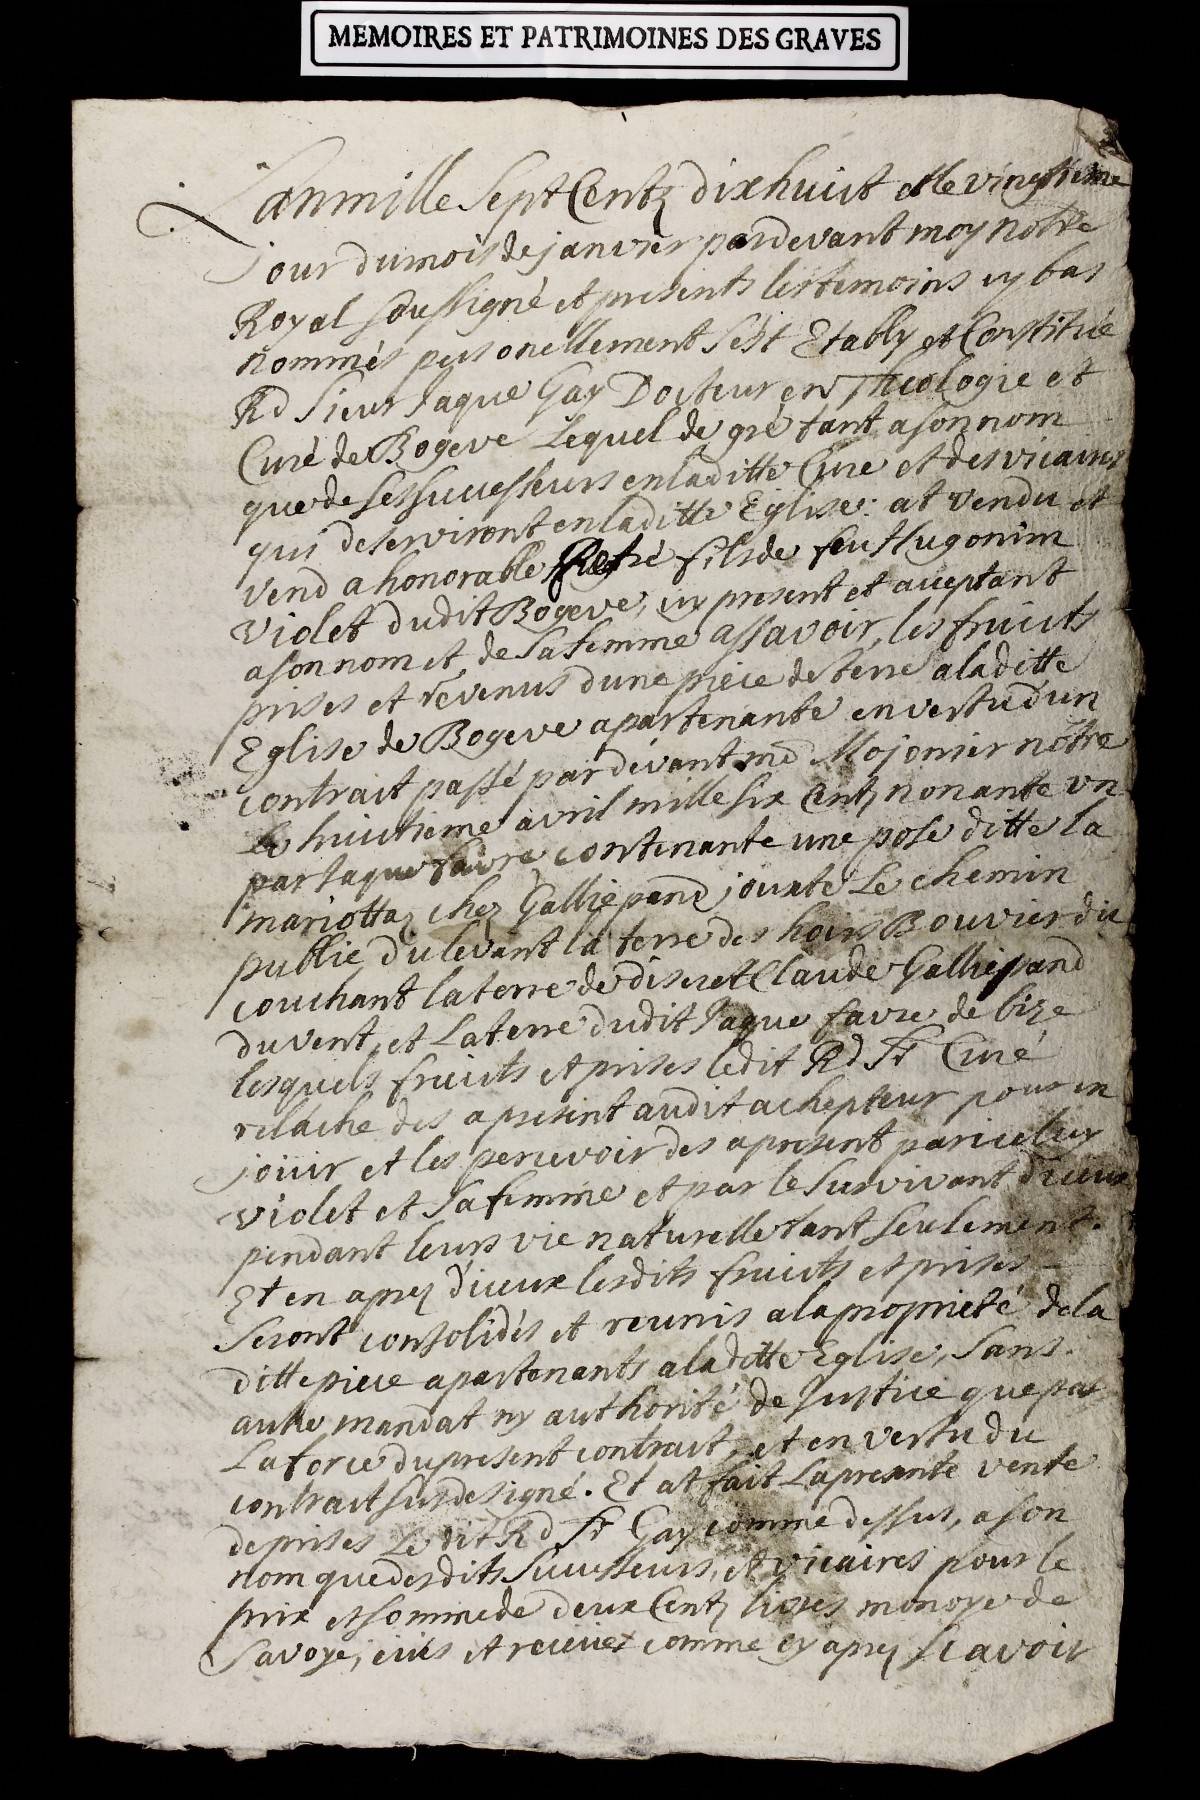 MEMOIRES ET PATRIMOINES DES GRAVES
Lanmille Sept Centz dixhuict et le vingtieme
Jour dumois de janvier pardevant moy notre
Royal soussigné et presents les temoins cy bas
nommés personellement sest Etably et Constitué
Rd Sieur Jaque Gay Docteur en Theologie et
Curé de Bogeve Lequel de gré tant asonnom
que de ses successeurs enladitte Cure et des vicaires
qui deserviront enladitte Eglise: at vendu et
vend a honorable fils de feu Hugonim
violet dudit Bogeve, icy present et acceptant
asonnom et de sa femme assavoir, les fruicts
prises et revenus dune piece de terre aladitte
Eglise de Bogeve apartenante envertudun
contract passé pardevant me Mojonier notre
le huictieme avril mille six Centz nonante un
par Jaque favre, contenante une pose ditte la
mariottaz chez Galliepand jouxte Le chemin
public du levant la terre des hoirs Bouvier du
couchant la terre de discret Claude Galliepand
du vent, et La terre dudit Jaque favre de bize
lesquels fruicts et prises ledit Rd Sr Curé
relache des apresent audit achepteur pour en
jouir et les percevoir des apresent par iceluy
violet et sa femme et par le survivant diceux
pendant leurs vie naturelle tant seulement.
Et en aprez diceux lesdits fruicts et prises
seront consolidés et reunis alapropriété dela
ditte piece apartenants aladitte Eglise, sans
autre mandat ny authorité de Justice que par
La force dupresent contract, et en vertu du
contract susdesigné. Et at fait Lapresente vente
de prises Le dit Rd Sr Gay comme dessus, a son
nom que desdits successeurs, et vicaires pour le
prix et somme de deux Centz livres monoye de
Savoye, eües et receües comme cy aprez scavoir